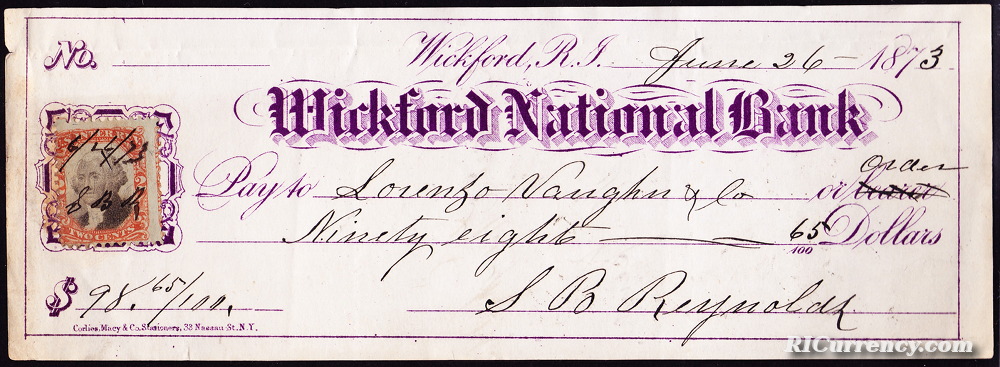 No. Wickford, R.I. June 26 1873.
Wickford National Bank
6/26/73
S B R
TWO CENTS
order
Pay to Lorenzo Vaughn & Co or bearer
Ninety eight 65/100 Dollars
$ 98.65/100.
S B Reynolds
Corlies, Macy & Co. Stationers, 33 Nassau St. N.Y.
RICurrency.com